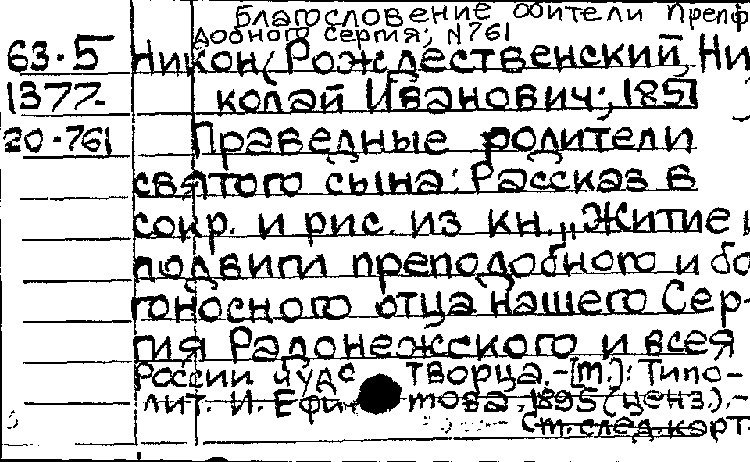 Благословение обители преп
63.5
добного Сергия; N 761
Никон (Рождественский, Ни
1377
колай Иванович;, 1851
20-761
Праведные родители
святого сына: Рассказ в
сокр. и рис. из кн. „Житие и
подвиги преподобного и бо
гоносного отца нашего Сер-
гия Радонежского и всея
России чудотворца. - [М.]: Типо-
лит. И. Ефимова, 1895 (ценз.). -
См. след. карт.